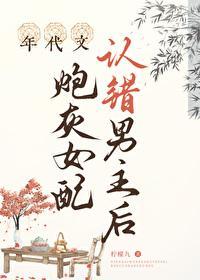 年代文
炮灰女配
认错男主后
柠檬九 著